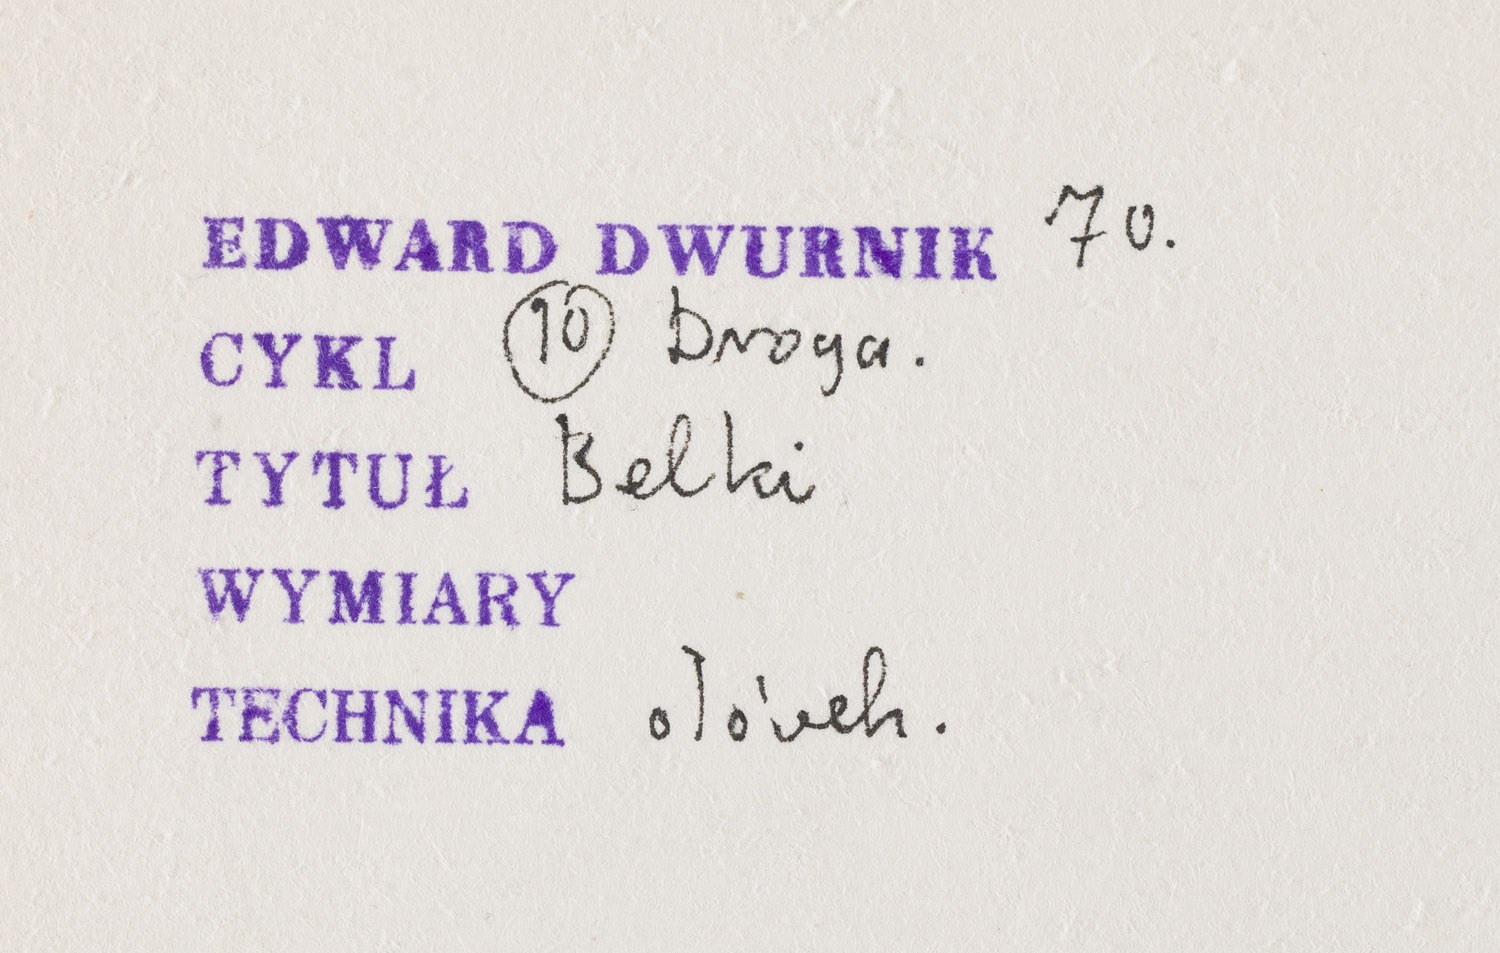 EDWARD DWURNIK 70.
CYKL 10 Droga.
TYTUŁ Belki
WYMIARY
TECHNIKA ołówek.